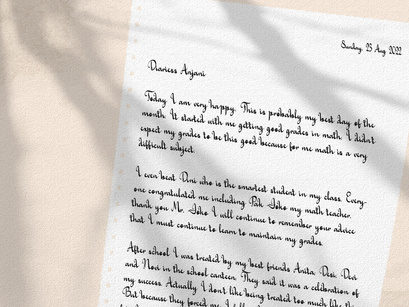 Sunday, 25 Aug 2022
Diariess Anjani
Today I am very happy. This is probably my best day of the
month. It started with me getting good grades in math. I didn't
expect my grades to be this good because for me math is a very
difficult subject.
I even beat Dini who is the smartest student in my class. Every-
one congratulated me including Pak Joko my math teacher.
thank you Mr. Joko I will continue to remember your advice
that I must continue to learn to maintain my grades.
After school I was treated by my best friends Anita, Desi, Devi
and Novi in the school canteen. They said it was a celebration of
my success. Actually I don't like being treated too much like this
But because they forced me I